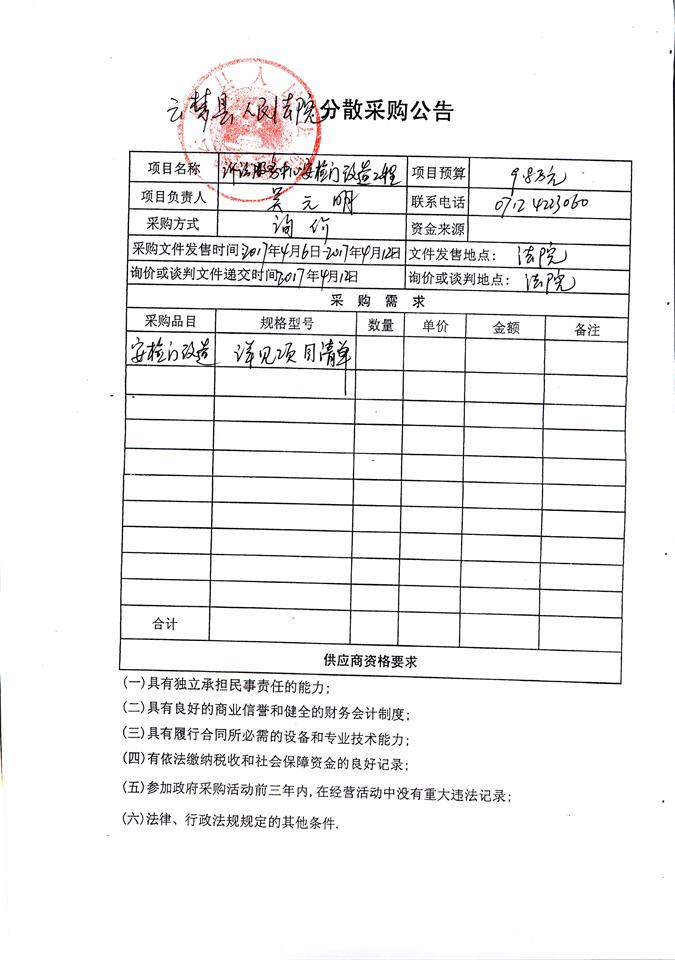 云梦县人民法院分散采购公告
项目名称 诉讼服务中心安检门改造工程 项目预算 9.8万元
项目负责人 吴元明 联系电话 0712 4223060
采购方式 询价 资金来源
采购文件发售时间:2017年4月6日-2017年4月12日 文件发售地点: 法院
询价或谈判文件递交时间:2017年4月12日 询价或谈判地点: 法院
采购需求
采购品目 规格型号 数量 单价 金额 备注
安检门改造 详见项目清单
合计
供应商资格要求
(一)具有独立承担民事责任的能力;
(二)具有良好的商业信誉和健全的财务会计制度;
(三)具有履行合同所必需的设备和专业技术能力;
(四)有依法缴纳税收和社会保障资金的良好记录;
(五)参加政府采购活动前三年内,在经营活动中没有重大违法记录;
(六)法律、行政法规规定的其他条件.